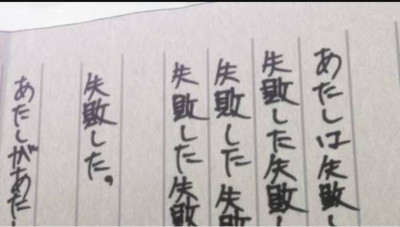 あたしは失敗し
失敗した失敗し
失敗した 失敗
失敗した失敗
失敗した。
あたしがあたし